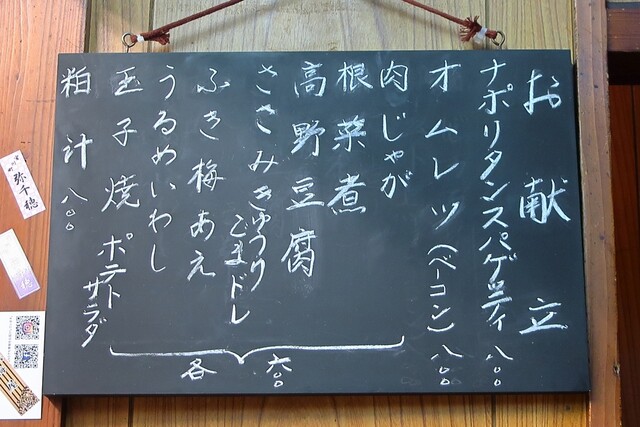 お献立
ナポリタンスパゲッティ 八〇〇
オムレツ(ベーコン) 八〇〇
肉じゃが
根菜煮
高野豆腐
ささみきゅうり
ごまドレ
ふき梅あえ
うるめいわし
玉子焼 ポテトサラダ
各 六〇〇
粕汁 八〇〇
弥千穂